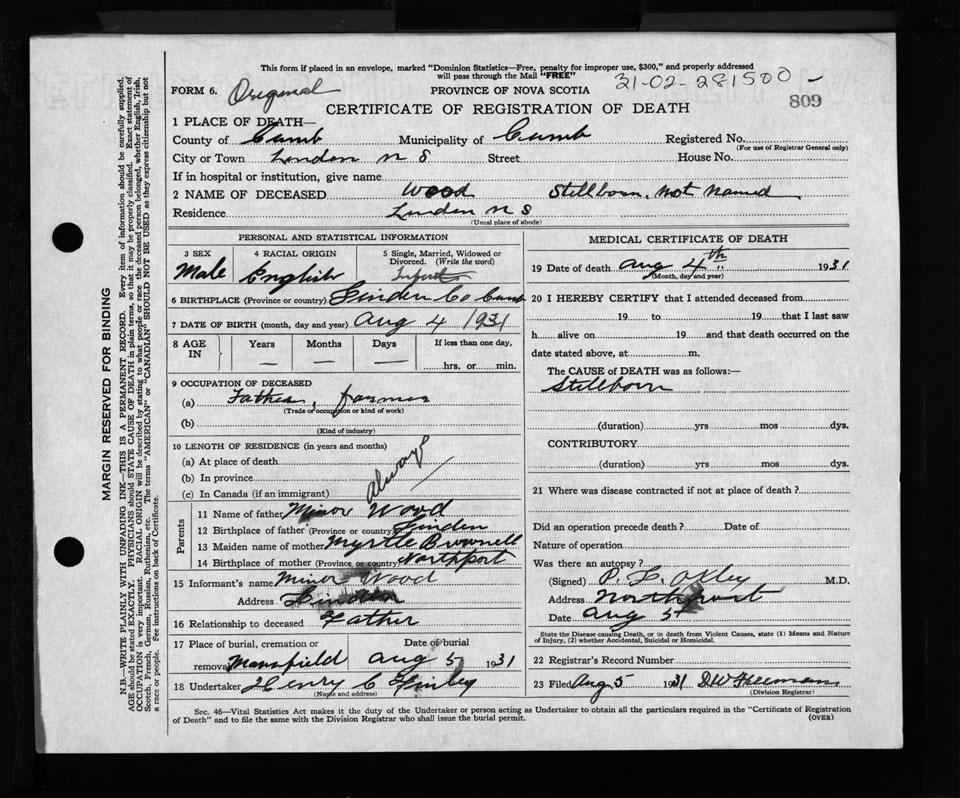 This form if placed in an envelope, marked "Dominion Statistics—Free, penalty for improper use, $300," and properly addressed
will pass through the Mail "FREE"
31-02-281500 –
FORM 6. Original PROVINCE OF NOVA SCOTIA
809
CERTIFICATE OF REGISTRATION OF DEATH
1 PLACE OF DEATH—
County of Cumb Municipality of Cumb Registered No.
(For use of Registrar General only)
City or Town Linden N S Street House No.
If in hospital or institution, give name
2 NAME OF DECEASED Wood Stillborn, not named
Residence Linden N S
(Usual place of abode)
PERSONAL AND STATISTICAL INFORMATION
3 SEX Male
4 RACIAL ORIGIN English
5 Single, Married, Widowed or
Divorced. (Write the word)
Infant
6 BIRTHPLACE (Province or country) Linden Co Cumb
7 DATE OF BIRTH (month, day and year) Aug 4 1931
8 AGE IN Years — Months — Days — If less than one day,
hrs. or min.
9 OCCUPATION OF DECEASED
(a) Father, farmer
(Trade or occupation or kind of work)
(b)
(Kind of industry)
10 LENGTH OF RESIDENCE (in years and months)
(a) At place of death
(b) In province
(c) In Canada (if an immigrant)
always
Parents
11 Name of father Minor Wood
12 Birthplace of father (Province or country) Linden
13 Maiden name of mother Myrtle Brownell
14 Birthplace of mother (Province or country) Northport
15 Informant's name Minor Wood
Address Linden
16 Relationship to deceased Father
17 Place of burial, cremation or Date of burial
removal Mansfield Aug 5 1931
18 Undertaker Henry C
(Name and address)
MEDICAL CERTIFICATE OF DEATH
19 Date of death Aug 4th 1931
(Month, day and year)
20 I HEREBY CERTIFY that I attended deceased from
19 to 19 that I last saw
h alive on 19 and that death occurred on the
date stated above, at m.
The CAUSE of DEATH was as follows:—
Stillborn
(duration) yrs mos dys.
CONTRIBUTORY
(duration) yrs mos dys.
21 Where was disease contracted if not at place of death?
Did an operation precede death? Date of
Nature of operation
Was there an autopsy?
(Signed) P. L. Oxley M.D.
Address Northport
Date Aug 5
State the Disease causing Death, or in death from Violent Causes, state (1) Means and Nature
of Injury, (2) whether Accidental, Suicidal or Homicidal.
22 Registrar's Record Number
23 Filed Aug 5 1931 D W Freeman
(Division Registrar)
Sec. 46—Vital Statistics Act makes it the duty of the Undertaker or person acting as Undertaker to obtain all the particulars required in the "Certificate of Registration
of Death" and to file the same with the Division Registrar who shall issue the burial permit.
(OVER)
MARGIN RESERVED FOR BINDING
N.B.—WRITE PLAINLY WITH UNFADING INK—THIS IS A PERMANENT RECORD. Every item of information should be carefully supplied.
AGE should be stated EXACTLY. PHYSICIANS should STATE CAUSE OF DEATH in plain terms, so that it may be properly classified. Exact statement of
OCCUPATION is very important. RACIAL ORIGIN will be described by stating to what people or race the deceased person belonged, whether English, Irish,
Scotch, French, German, Russian, Ruthenian, etc. The terms "AMERICAN" or "CANADIAN" SHOULD NOT BE USED as they express citizenship but not
a race or people. See instructions on back of Certificate.